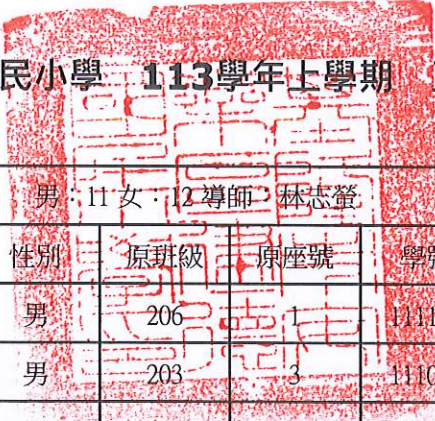 民小學 113學年上學期
男：11 女：12 導師：林志螢
性別 原班級 原座號 學號
男 206 1 1111
男 203 3 1110